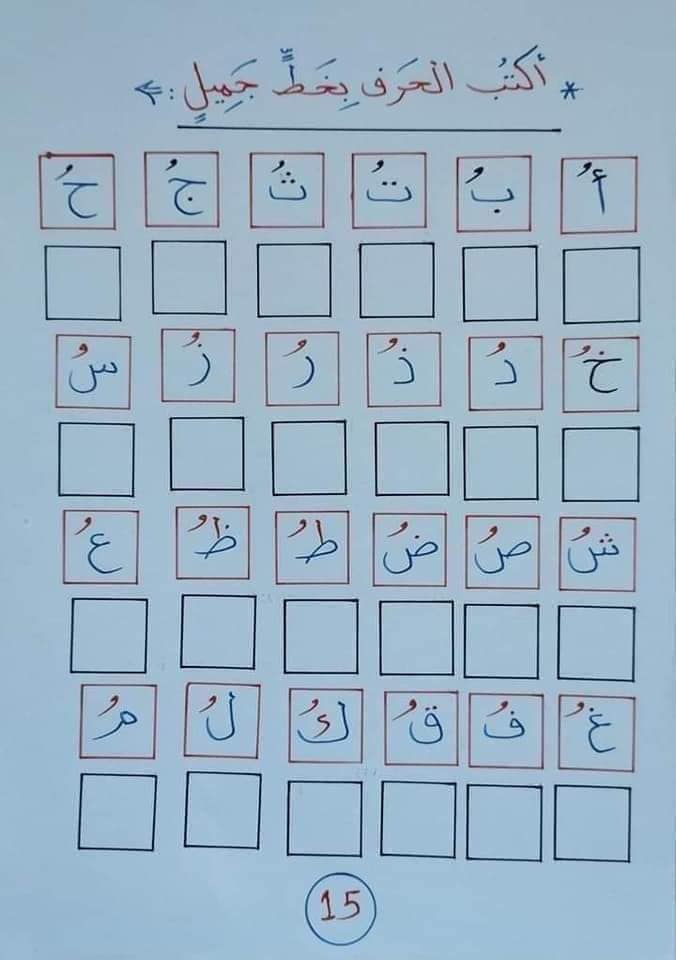 * أَكتُبُ الْحَرَف بِخَطٍّ جَمِيلٍ :
أُ بُ تُ ثُ جُ حُ
خُ دُ ذُ رُ زُ سُ
شُ صُ ضُ طُ ظُ عُ
غُ فُ قُ كُ لُ مُ
15